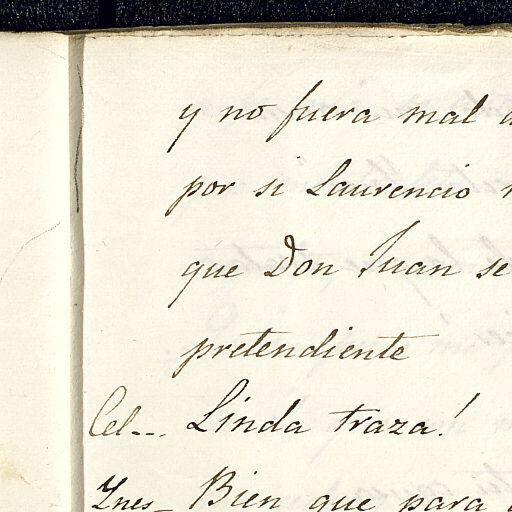 y no fuera mal
por si Laurencio
que Don Juan se
pretendiente
Cel... Linda traza!
Ynes_ Bien que para